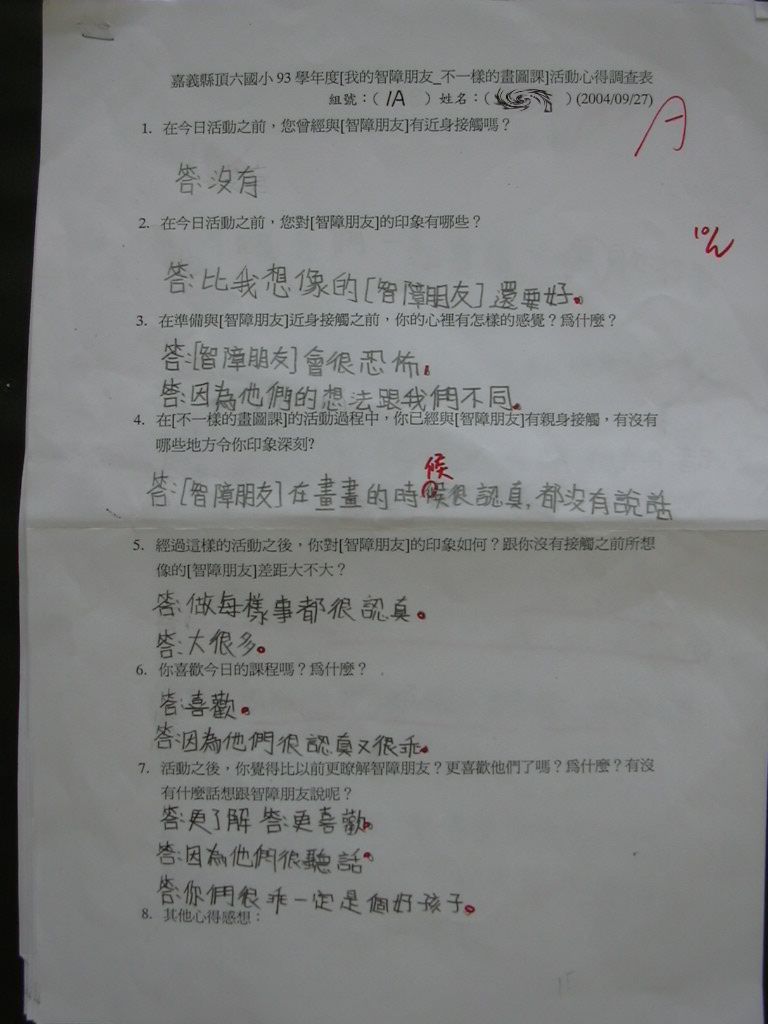 嘉義縣頂六國小 93 學年度[我的智障朋友_不一樣的畫圖課]活動心得調查表
組號：( 1A ) 姓名：( ) (2004/09/27)
A
1. 在今日活動之前，您曾經與[智障朋友]有近身接觸嗎？
答:沒有
2. 在今日活動之前，您對[智障朋友]的印象有哪些？
答:比我想像的[智障朋友]還要好。
3. 在準備與[智障朋友]近身接觸之前，你的心裡有怎樣的感覺？爲什麼？
答:[智障朋友]會很恐怖。
答:因為他們的想法跟我們不同。
4. 在[不一樣的畫圖課]的活動過程中，你已經與[智障朋友]有親身接觸，有沒有
哪些地方令你印象深刻?
候
答:[智障朋友]在畫畫的時候很認真,都沒有說話
5. 經過這樣的活動之後，你對[智障朋友]的印象如何？跟你沒有接觸之前所想
像的[智障朋友]差距大不大？
答:做每樣事都很認真。
答:大很多。
6. 你喜歡今日的課程嗎？爲什麼？
答:喜歡。
答:因為他們很認真又很乖。
7. 活動之後，你覺得比以前更瞭解智障朋友？更喜歡他們了嗎？爲什麼？有沒
有什麼話想跟智障朋友說呢？
答:更了解 答:更喜歡。
答:因為他們很聽話。
答:你們很乖一定是個好孩子。
8. 其他心得感想：